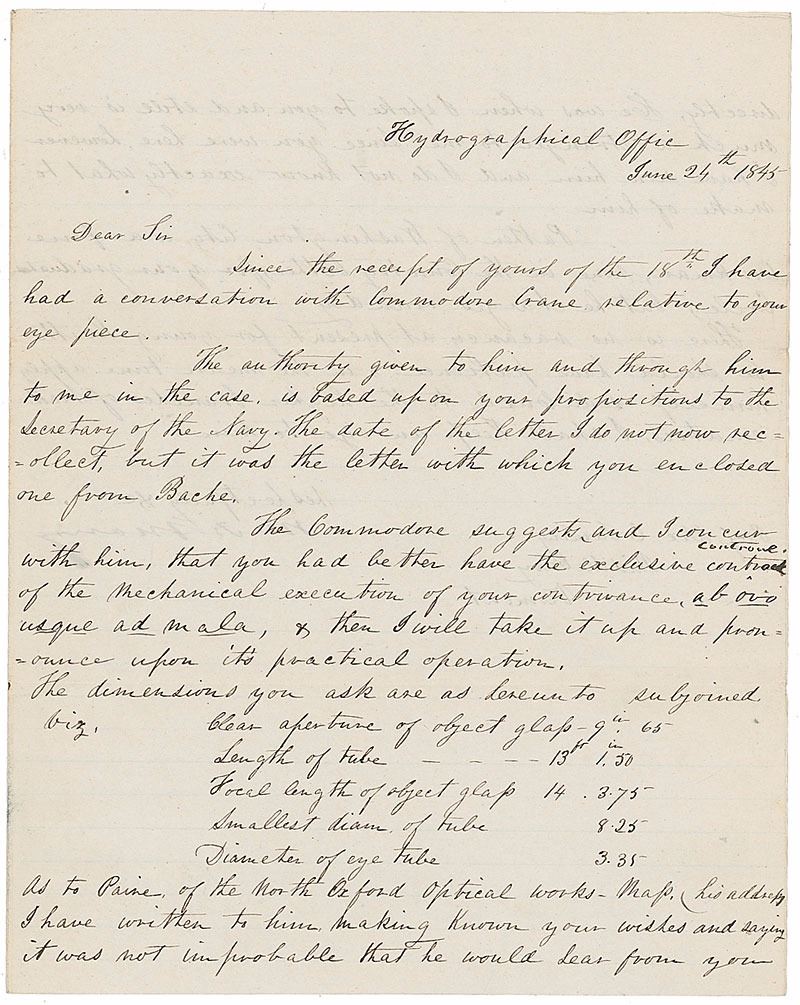 Hydrographical Office
June 24th 1845
Dear Sir
Since the receipt of yours of the 18th I have
had a conversation with Commodore Crane relative to your
eye piece.
The authority given to him and through him
to me in the case, is based upon your propositions to the
Secretary of the Navy. The date of the letter I do not now rec=
=ollect, but it was the letter with which you enclosed
one from Bache.
The Commodore suggests, and I concur
controul.
with him, that you had better have the exclusive
of the mechanical execution of your contrivance, ab ovo
usque ad mala, & then I will take it up and pron=
=ounce upon it's practical operation.
The dimensions you ask are as hereunto subjoined
viz. Clear aperture of object glass - 9in. 65
Length of tube - - - - 13ft 1.50in
Focal length of object glass 14 . 3.75
Smallest diam. of tube 8.25
Diameter of eye tube 3.35
As to Paine, of the North Oxford Optical works - Mass. (his address)
I have written to him, making known your wishes and saying
it was not improbable that he would hear from you